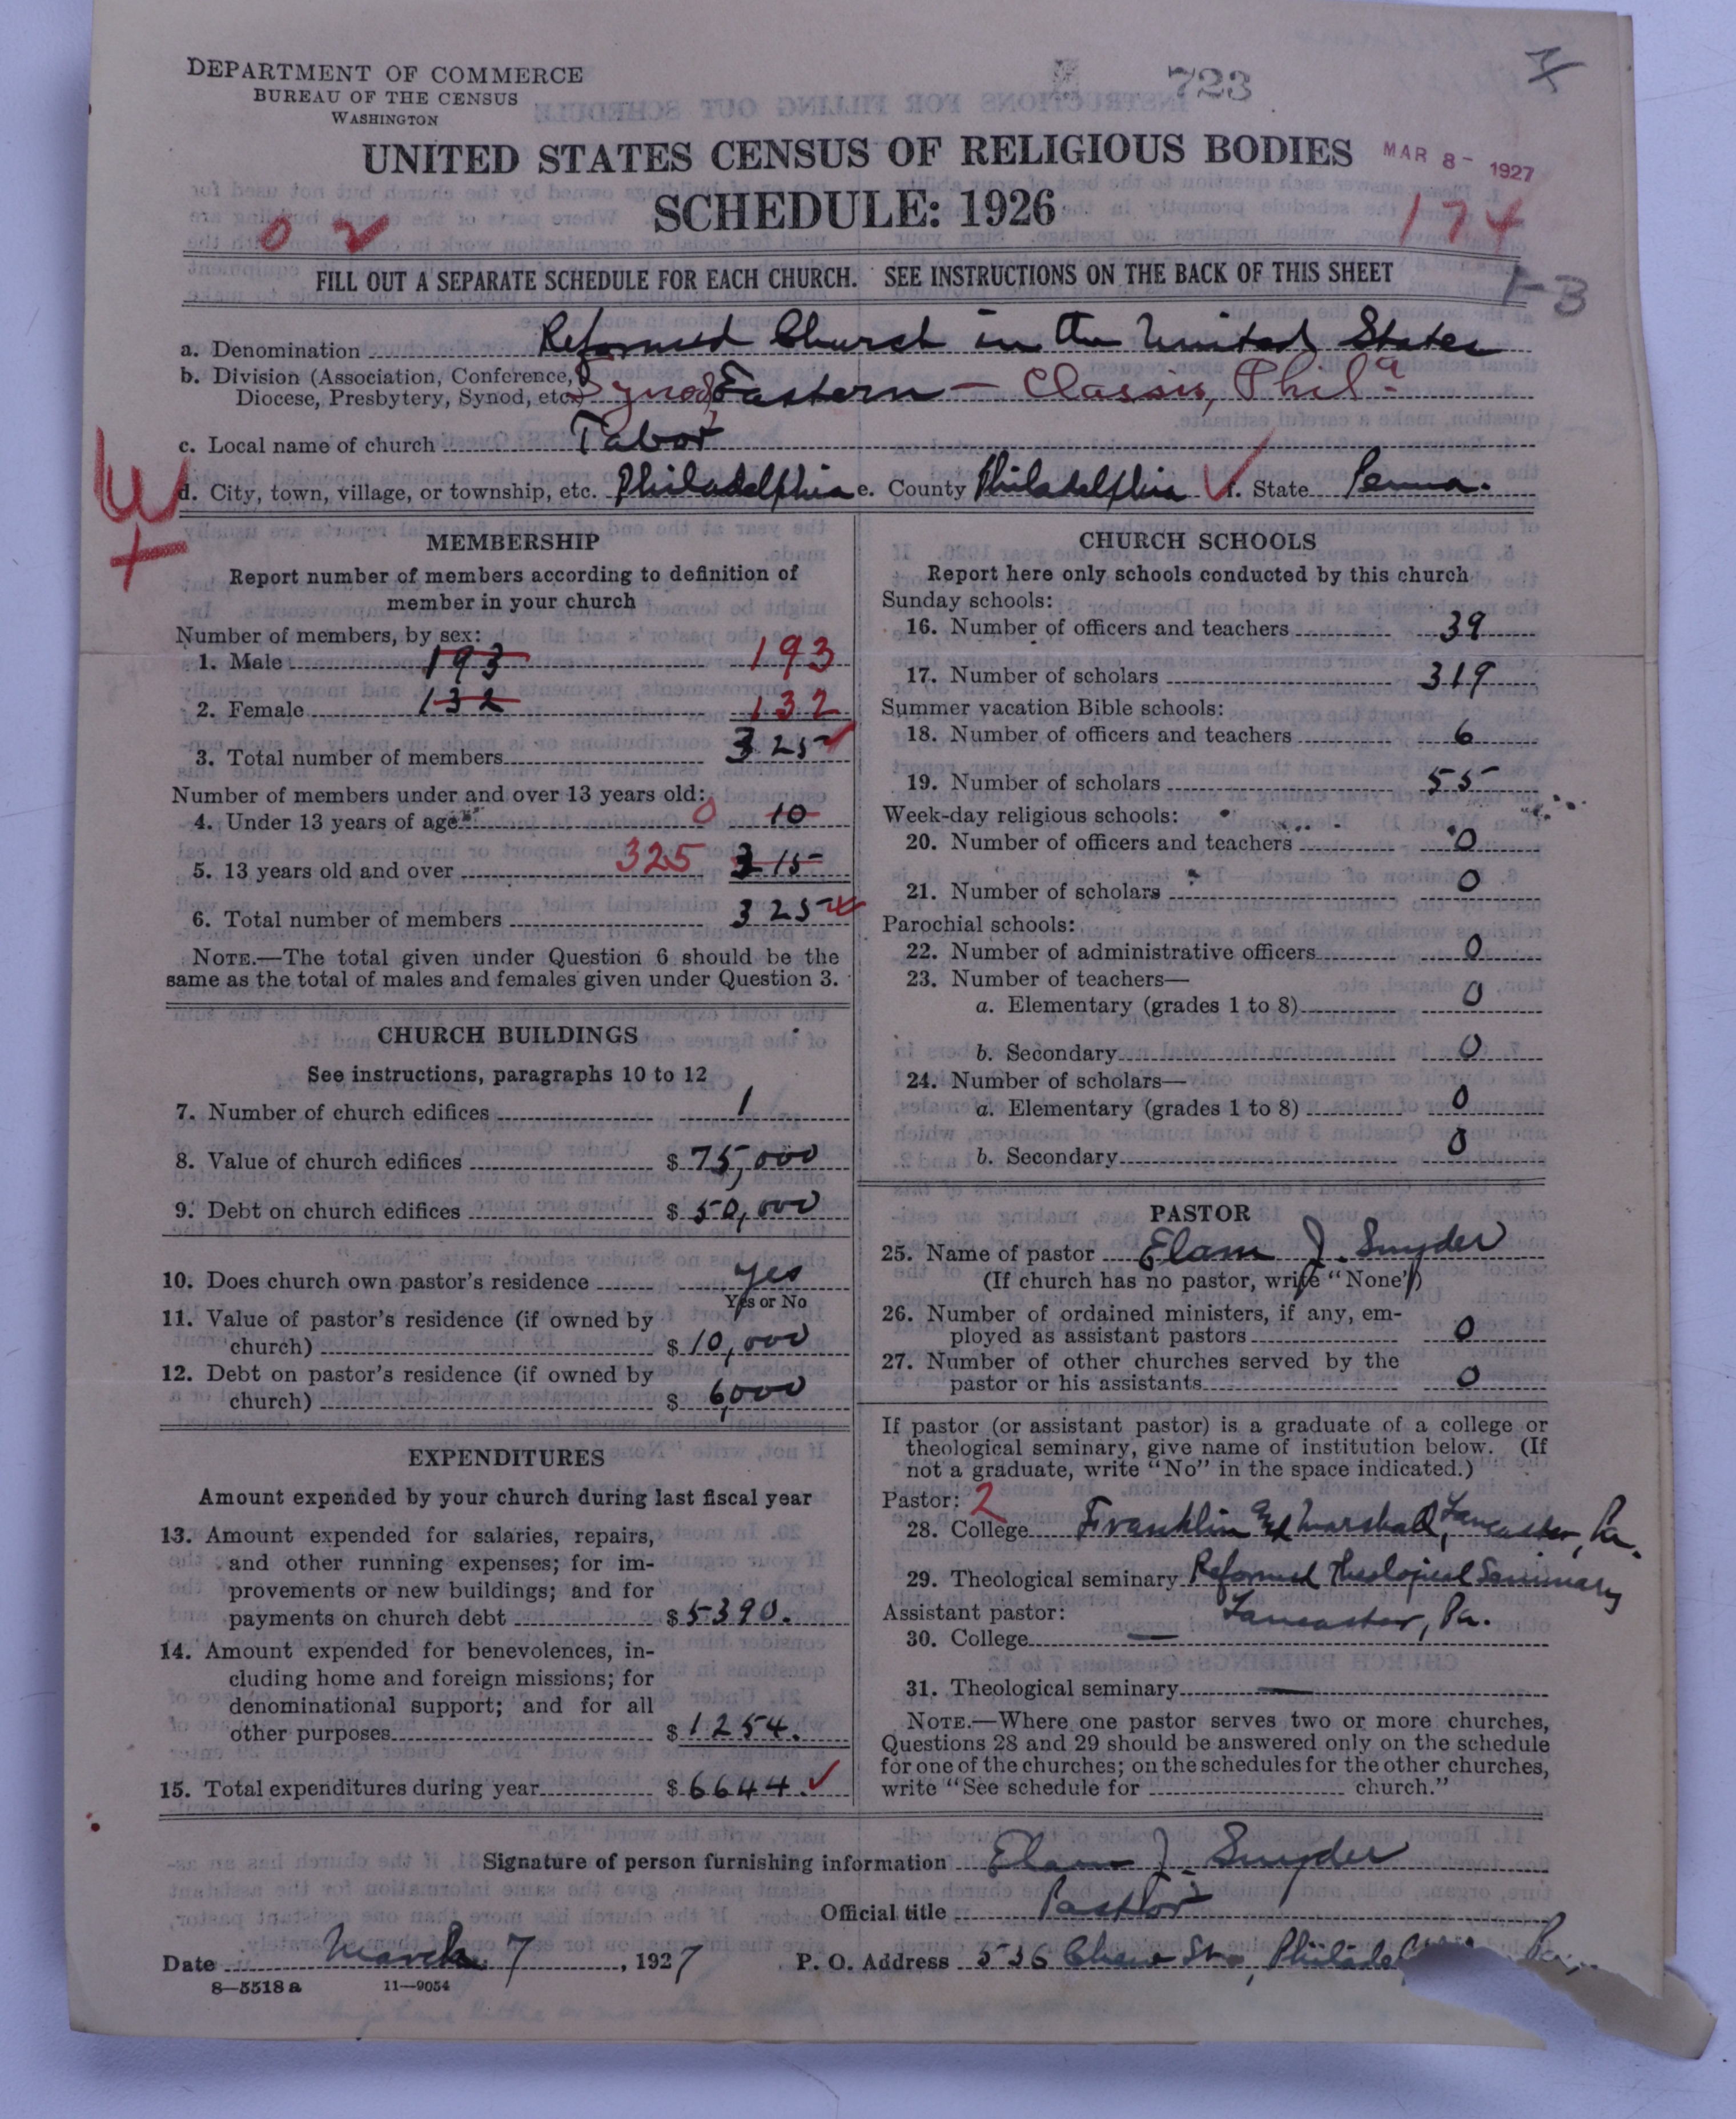 DEPARTMENT OF COMMERCE
BUREAU OF THE CENSUS
WASHINGTON
723
UNITED STATES CENSUS OF RELIGIOUS BODIES
MAR 8 - 1927
SCHEDULE: 1926
0 2
174
FILL OUT A SEPARATE SCHEDULE FOR EACH CHURCH. SEE INSTRUCTIONS ON THE BACK OF THIS SHEET
a. Denomination Reformed Church in the United States
b. Division (Association, Conference, Diocese, Presbytery, Synod, etc.) Synod, Eastern - Classis, Phila
c. Local name of church Tabor
d. City, town, village, or township, etc. Philadelphia e. County Philadelphia f. State Penna.
MEMBERSHIP
Report number of members according to definition of
member in your church
Number of members, by sex:
1. Male 193 193
2. Female 132 132
3. Total number of members 325
Number of members under and over 13 years old:
4. Under 13 years of age 0 10
5. 13 years old and over 325 315
6. Total number of members 325
NOTE.—The total given under Question 6 should be the
same as the total of males and females given under Question 3.
CHURCH BUILDINGS
See instructions, paragraphs 10 to 12
7. Number of church edifices 1
8. Value of church edifices $ 75,000
9. Debt on church edifices $ 50,000
10. Does church own pastor's residence yes
Yes or No
11. Value of pastor's residence (if owned by
church) $ 10,000
12. Debt on pastor's residence (if owned by
church) $ 6,000
EXPENDITURES
Amount expended by your church during last fiscal year
13. Amount expended for salaries, repairs,
and other running expenses; for im-
provements or new buildings; and for
payments on church debt $ 5390.
14. Amount expended for benevolences, in-
cluding home and foreign missions; for
denominational support; and for all
other purposes $ 1254.
15. Total expenditures during year $ 6644.
CHURCH SCHOOLS
Report here only schools conducted by this church
Sunday schools:
16. Number of officers and teachers 39
17. Number of scholars 319
Summer vacation Bible schools:
18. Number of officers and teachers 6
19. Number of scholars 55
Week-day religious schools:
20. Number of officers and teachers 0
21. Number of scholars 0
Parochial schools:
22. Number of administrative officers 0
23. Number of teachers—
a. Elementary (grades 1 to 8) 0
b. Secondary 0
24. Number of scholars—
a. Elementary (grades 1 to 8) 0
b. Secondary 0
PASTOR
25. Name of pastor Elam J. Snyder
(If church has no pastor, write "None")
26. Number of ordained ministers, if any, em-
ployed as assistant pastors 0
27. Number of other churches served by the
pastor or his assistants 0
If pastor (or assistant pastor) is a graduate of a college or
theological seminary, give name of institution below. (If
not a graduate, write "No" in the space indicated.)
Pastor: 2
28. College Franklin and Marshall, Lancaster, Pa.
29. Theological seminary Reformed Theological Seminary
Lancaster, Pa.
Assistant pastor:
30. College —
31. Theological seminary —
NOTE.—Where one pastor serves two or more churches,
Questions 28 and 29 should be answered only on the schedule
for one of the churches; on the schedules for the other churches,
write "See schedule for church."
Signature of person furnishing information Elam J. Snyder
Official title Pastor
Date March 7, 1927 P. O. Address 536 Chew St., Pa.
8—5518 a 11—9054